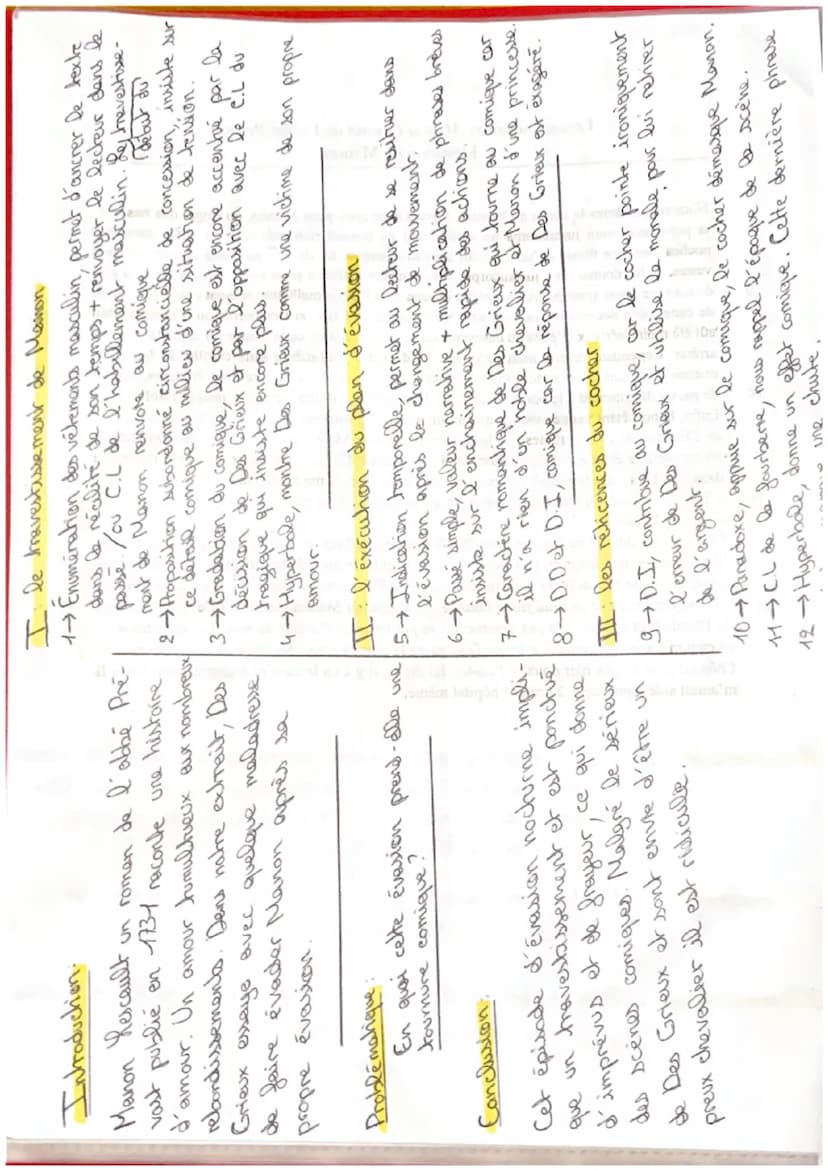 Introduction:
Manon Lescault un roman de l'abbé Pré-
vost publié en 1731 raconte une histoire
d'amour. Un amour tumultueux aux nombreux
rebondissements. Dans notre extrait, Des
Grieux essaye avec quelque maladresse
de faire évader Manon après sa
propre évasion.
Problématique:
En quoi cette évasion prend-elle une
tournure comique?
Conclusion:
Cet épisode d'évasion nocturne impli-
que un travestissement et est ponctué
d'imprévus et de frayeur, ce qui donne
des scènes comiques. Malgré le sérieux
de Des Grieux et sont envie d'être un
preux chevalier il est ridicule.
I: Le travestissement de Manon
1→ Énumération des vêtements masculin, permet d'ancrer le texte
dans la réalité de son temps + renvoyer le lecteur dans le
passé / ou C.L de l'habillement masculin. Le travestisse-
ment de Manon invite au comique (début du
2→ Proposition subordonné circonstancielle de concession, insiste sur
ce détail comique au milieu d'une situation de tension.
3→ Gradation du comique, le comique est encore accentué par la
décision de Des Grieux et mit en opposition avec le C.L du
tragique qui insiste encore plus.
4→ Hyperbole, montre Des Grieux comme une victime de son propre
amour.
II: L'exécution du plan d'évasion
5→ Indication temporelle, permet au lecteur de se resituer dans
l'évasion après le changement de mouvement.
6→ Passé simple, valeur narrative + multiplication de phrases brèves
insiste sur l'enchaînement rapide des actions.
7→ Caractère romantique de Des Grieux qui tourne au comique car
il n'a rien d'un noble chevalier et Manon d'une princesse.
8→ D.D et D.I, comique car la réponse de Des Grieux est exagéré.
III: Les réticences du cocher
9→ D.I, contribue au comique car le cocher pointe ironiquement
l'amour de Des Grieux et utilise la morale, pour lui retirer
de l'argent.
10→ Paradoxe, appuie sur le comique, le cocher démasque Manon.
11→ C.L de la fourberie, nous rappel l'époque de la scène.
12→ Hyperbole, donne un effet comique. Cette dernière phrase
marque une chute.